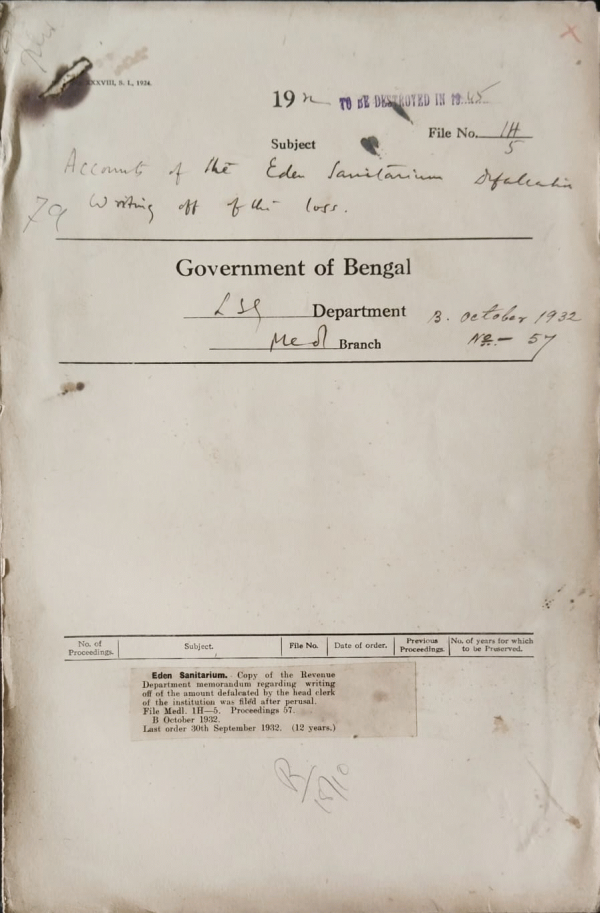 XXVIII, S. I., 1924.
19
TO BE DESTROYED IN 19 45
File No. 1H/5
Subject
Accounts of the Eden Sanitarium Defalcation
Writing off of the loss.
Government of Bengal
LSG Department
B. October 1932
Medl Branch
No. - 57
No. of Proceedings. Subject. File No. Date of order. Previous Proceedings. No. of years for which to be Preserved.
Eden Sanitarium. Copy of the Revenue
Department memorandum regarding writing
off of the amount defalcated by the head clerk
of the institution was filed after perusal.
File Medl. 1H—5. Proceedings 57.
B October 1932.
Last order 30th September 1932. (12 years.)